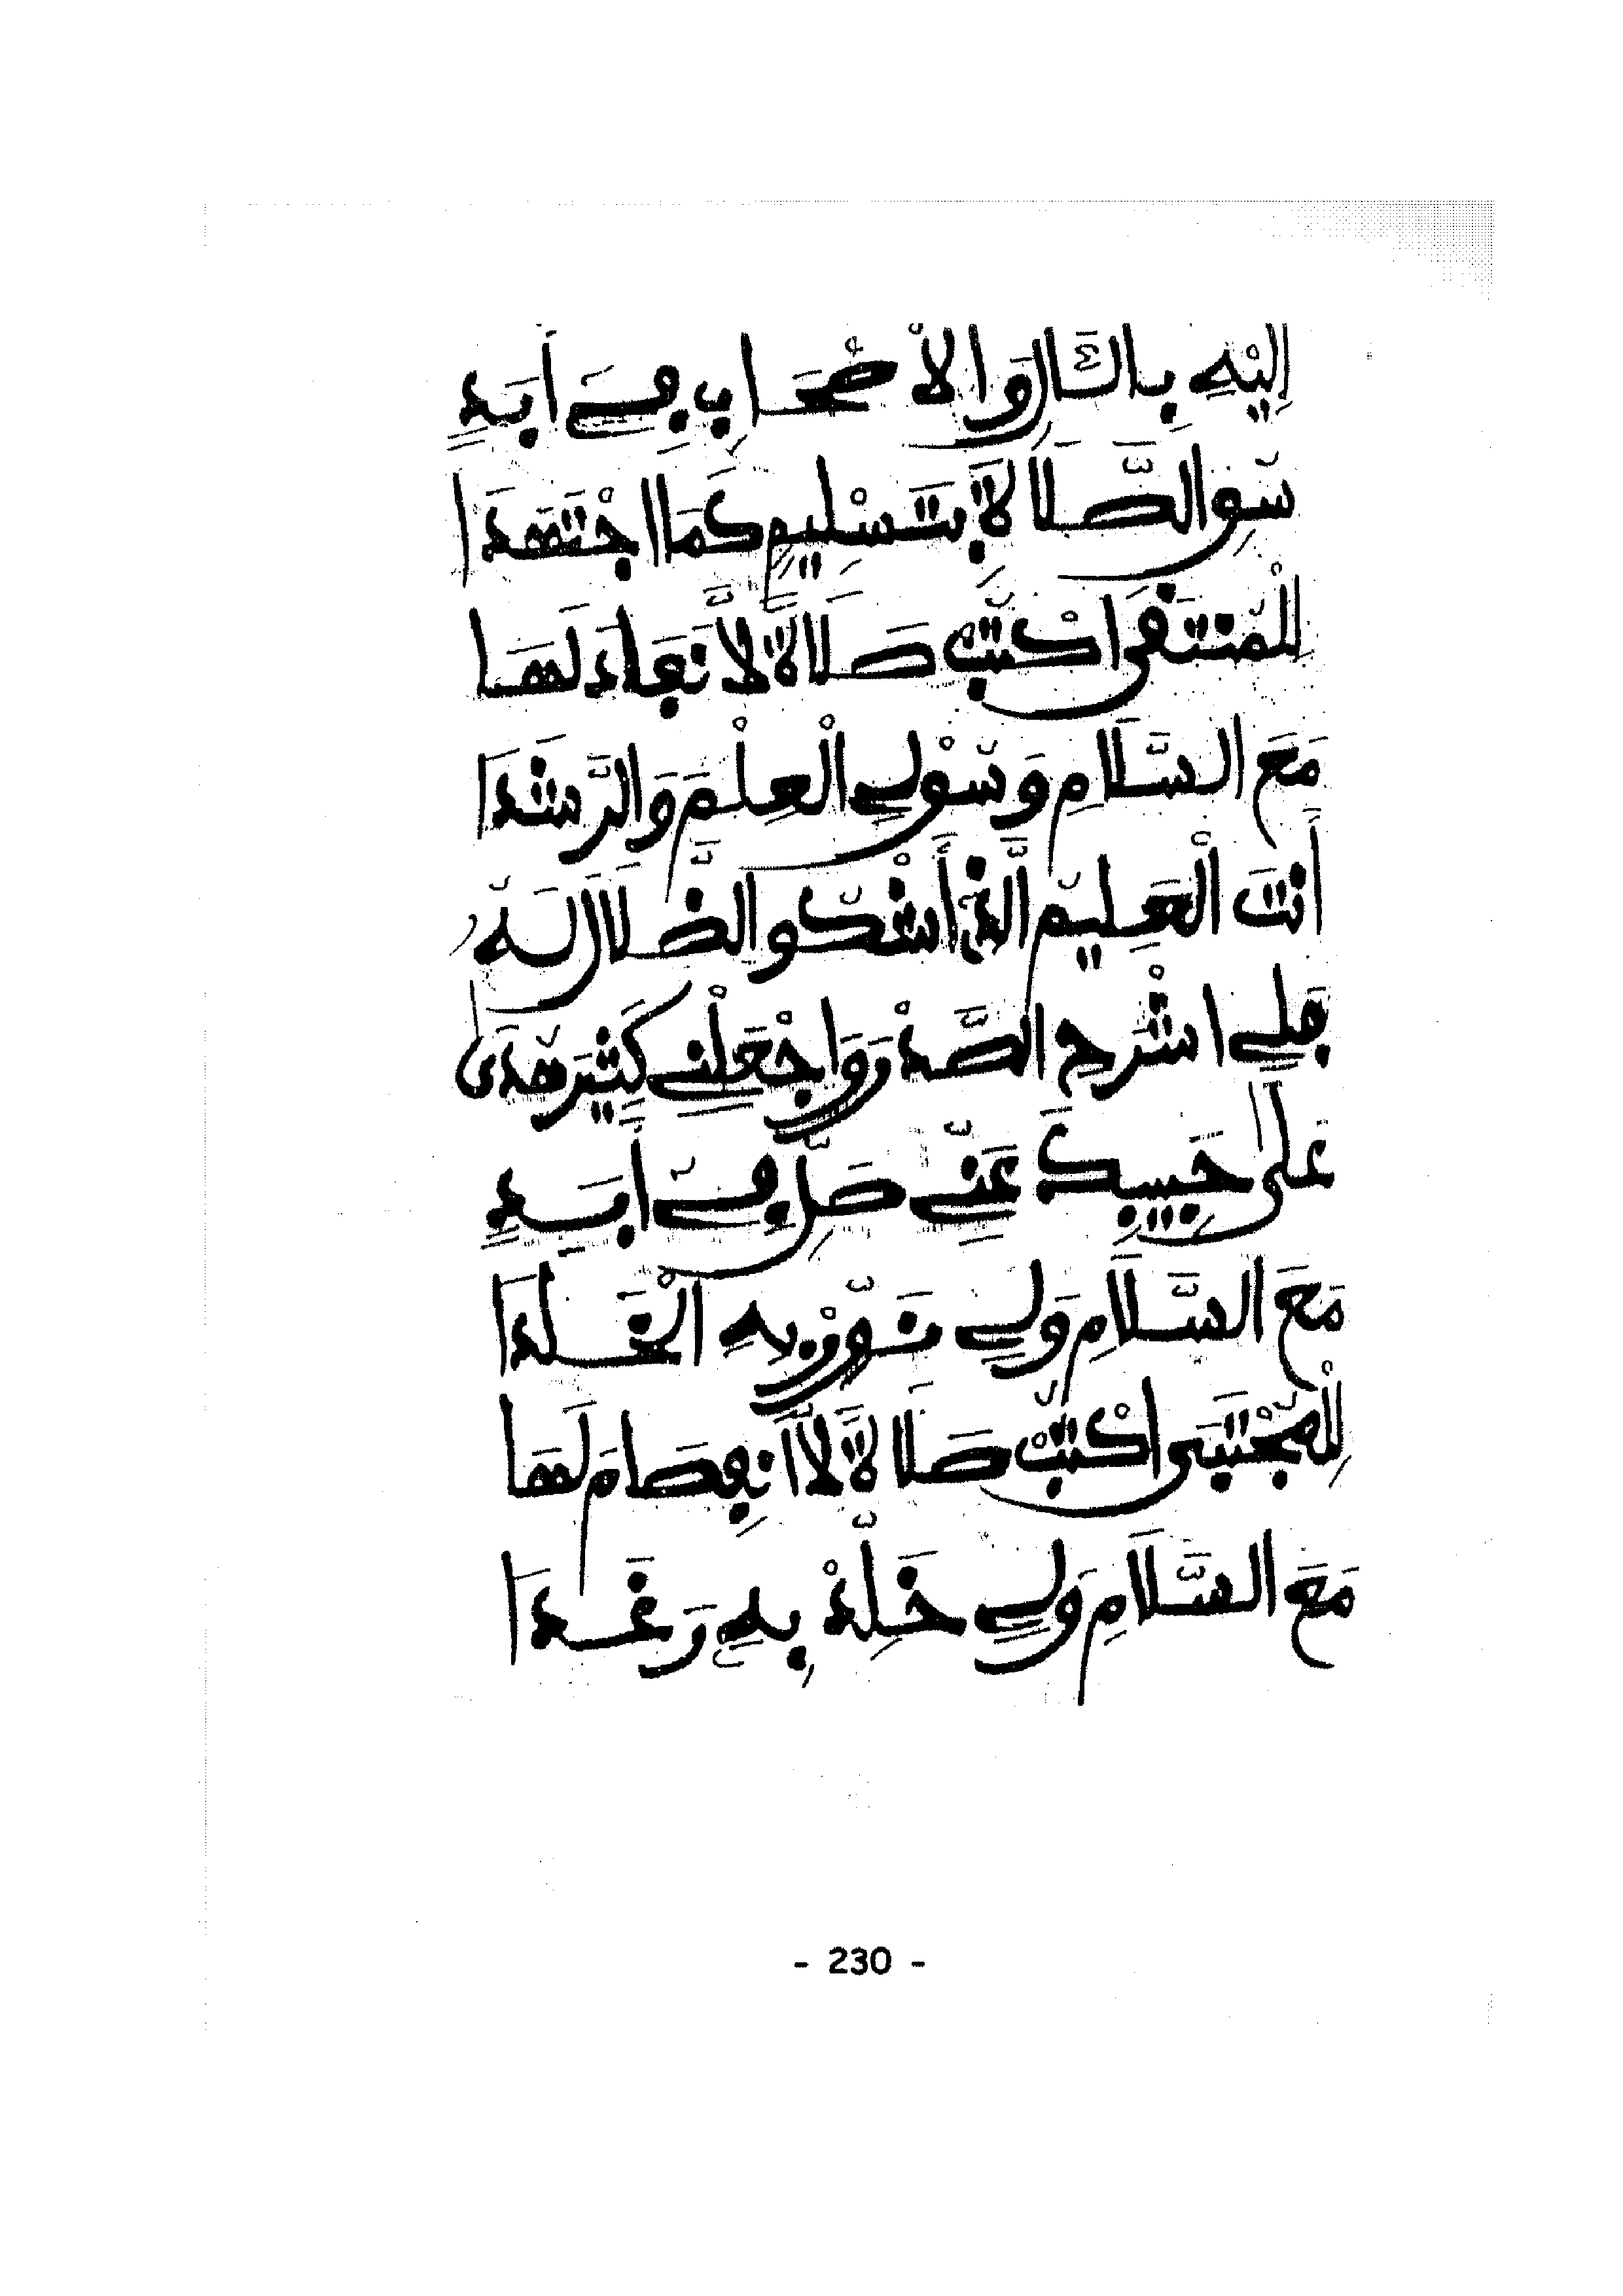 إِلَيْهِ بِالْآلِ وَالْأَصْحَابِ فِي أَبَدٍ
سُوَ الصَّلَاةَ بِتَسْلِيمٍ كَمَا اجْتَهَدَا
لِلْمُنْتَقَى اكْتُبْ صَلَاةً لَا نَفَادَ لَهَا
مَعَ السَّلَامِ وَسُوْ لِي الْعِلْمَ وَالرَّشَدَا
أَنْتَ الْعَلِيمُ الَّذِي أَشْكُو الضَّلَالَ لَهُ
فَلِي اشْرَحِ الصَّدْرَ وَاجْعَلْنِي كَثِيرَ هُدَى
عَلَى حَبِيبِكَ عَنِّي صَلِّ فِي أَبَدٍ
مَعَ السَّلَامِ وَلِي نَوِّرْ بِهِ الْخَلَدَا
لِلْمُجْتَبَى اكْتُبْ صَلَاةً لَا انْفِصَامَ لَهَا
مَعَ السَّلَامِ وَلِي خَلِّدْ بِهِ رَغَدَا
- 230 -